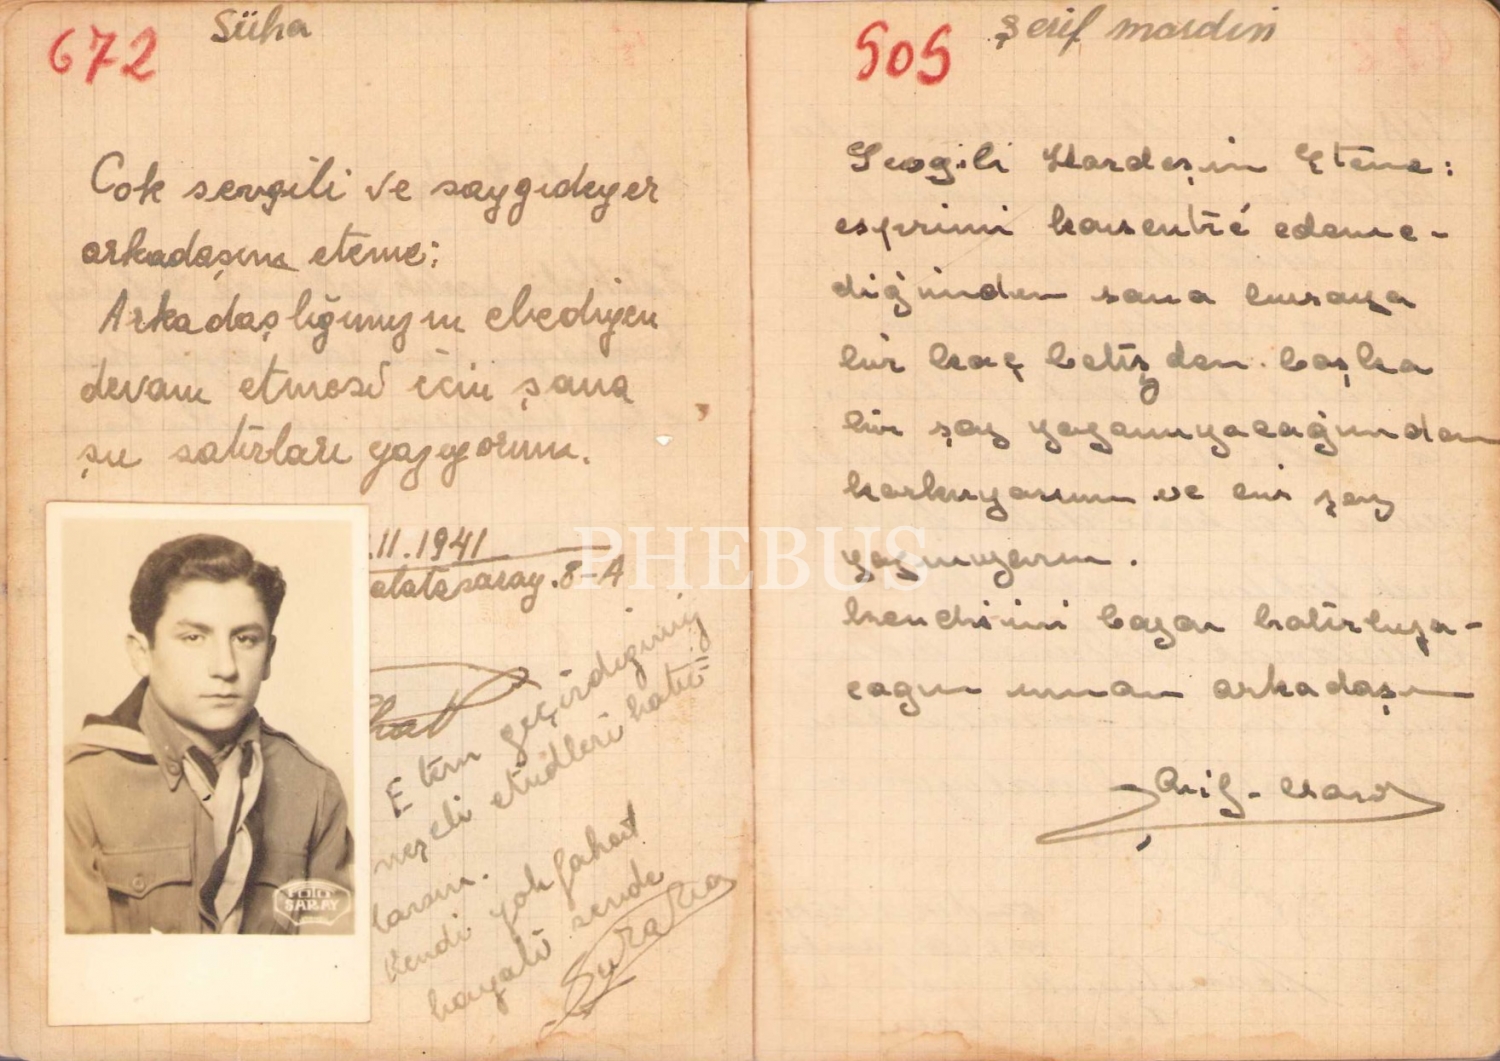 672 Süha
Çok sevgili ve saygıdeyer
arkadaşım eteme;
Arkadaşlığımızın ebediyen
devam etmesi için sana
şu satırları yazıyorum.
.11.1941
alatasaray. 8-A
Etem geçirdiğimiz
neşeli etüdleri hatır-
larsın.
Kendi yok fakat
hayali sende
FOTO
SARAY
505 Şerif mardin
Sevgili Kardeşim Eteme:
esprimi konsentré edeme-
diğimden sana buraya
bir kaç betiş den başka
bir şay yazamıyacağımdan
korkuyorum ve bir şey
yazmıyorum.
kendisini bazan hatırlıya-
cağın uman arkadaşın
Şerif
PHEBUS